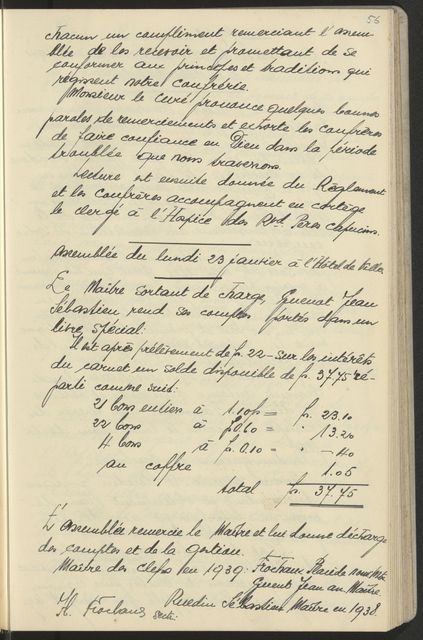 56
chacun un compliment remerciant l'assem-
blée de les recevoir et promettant de se
conformer aux principes et traditions qui
régissent notre confrérie.
Monsieur le Curé prononce quelques bonnes
paroles de remerciements et exhorte les confrères
de faire confiance en Dieu dans la période
troublée que nous traversons.
Lecture est ensuite donnée du Règlement
et les confrères accompagnent en cortège
le clergé à l'Hospice des Rvd. Pères capucins.
Assemblée du lundi 23 janvier à l'Hôtel de Ville
Le Maître sortant de charge, Guenat Jean
Sébastien rend ses comptes portés dans un
livre spécial:
Il est après prélèvement de fr. 22 – sur les intérêts
du carnet un solde disponible de fr. 37.75 ré-
parti comme suit:
21 bons entiers à 1.10 = fr. 23.10
22 bons à f 0.60 = " 13.20
4 bons à fr. 0.10 = " – 40
au coffre 1.05
total fr. 37.75
L'Assemblée remercie le Maître et lui donne décharge
des comptes et de la gestion.
Maître des clefs en 1939: Placide
Jean an. Maître.
Sébastien, Maître en 1938.
secr.